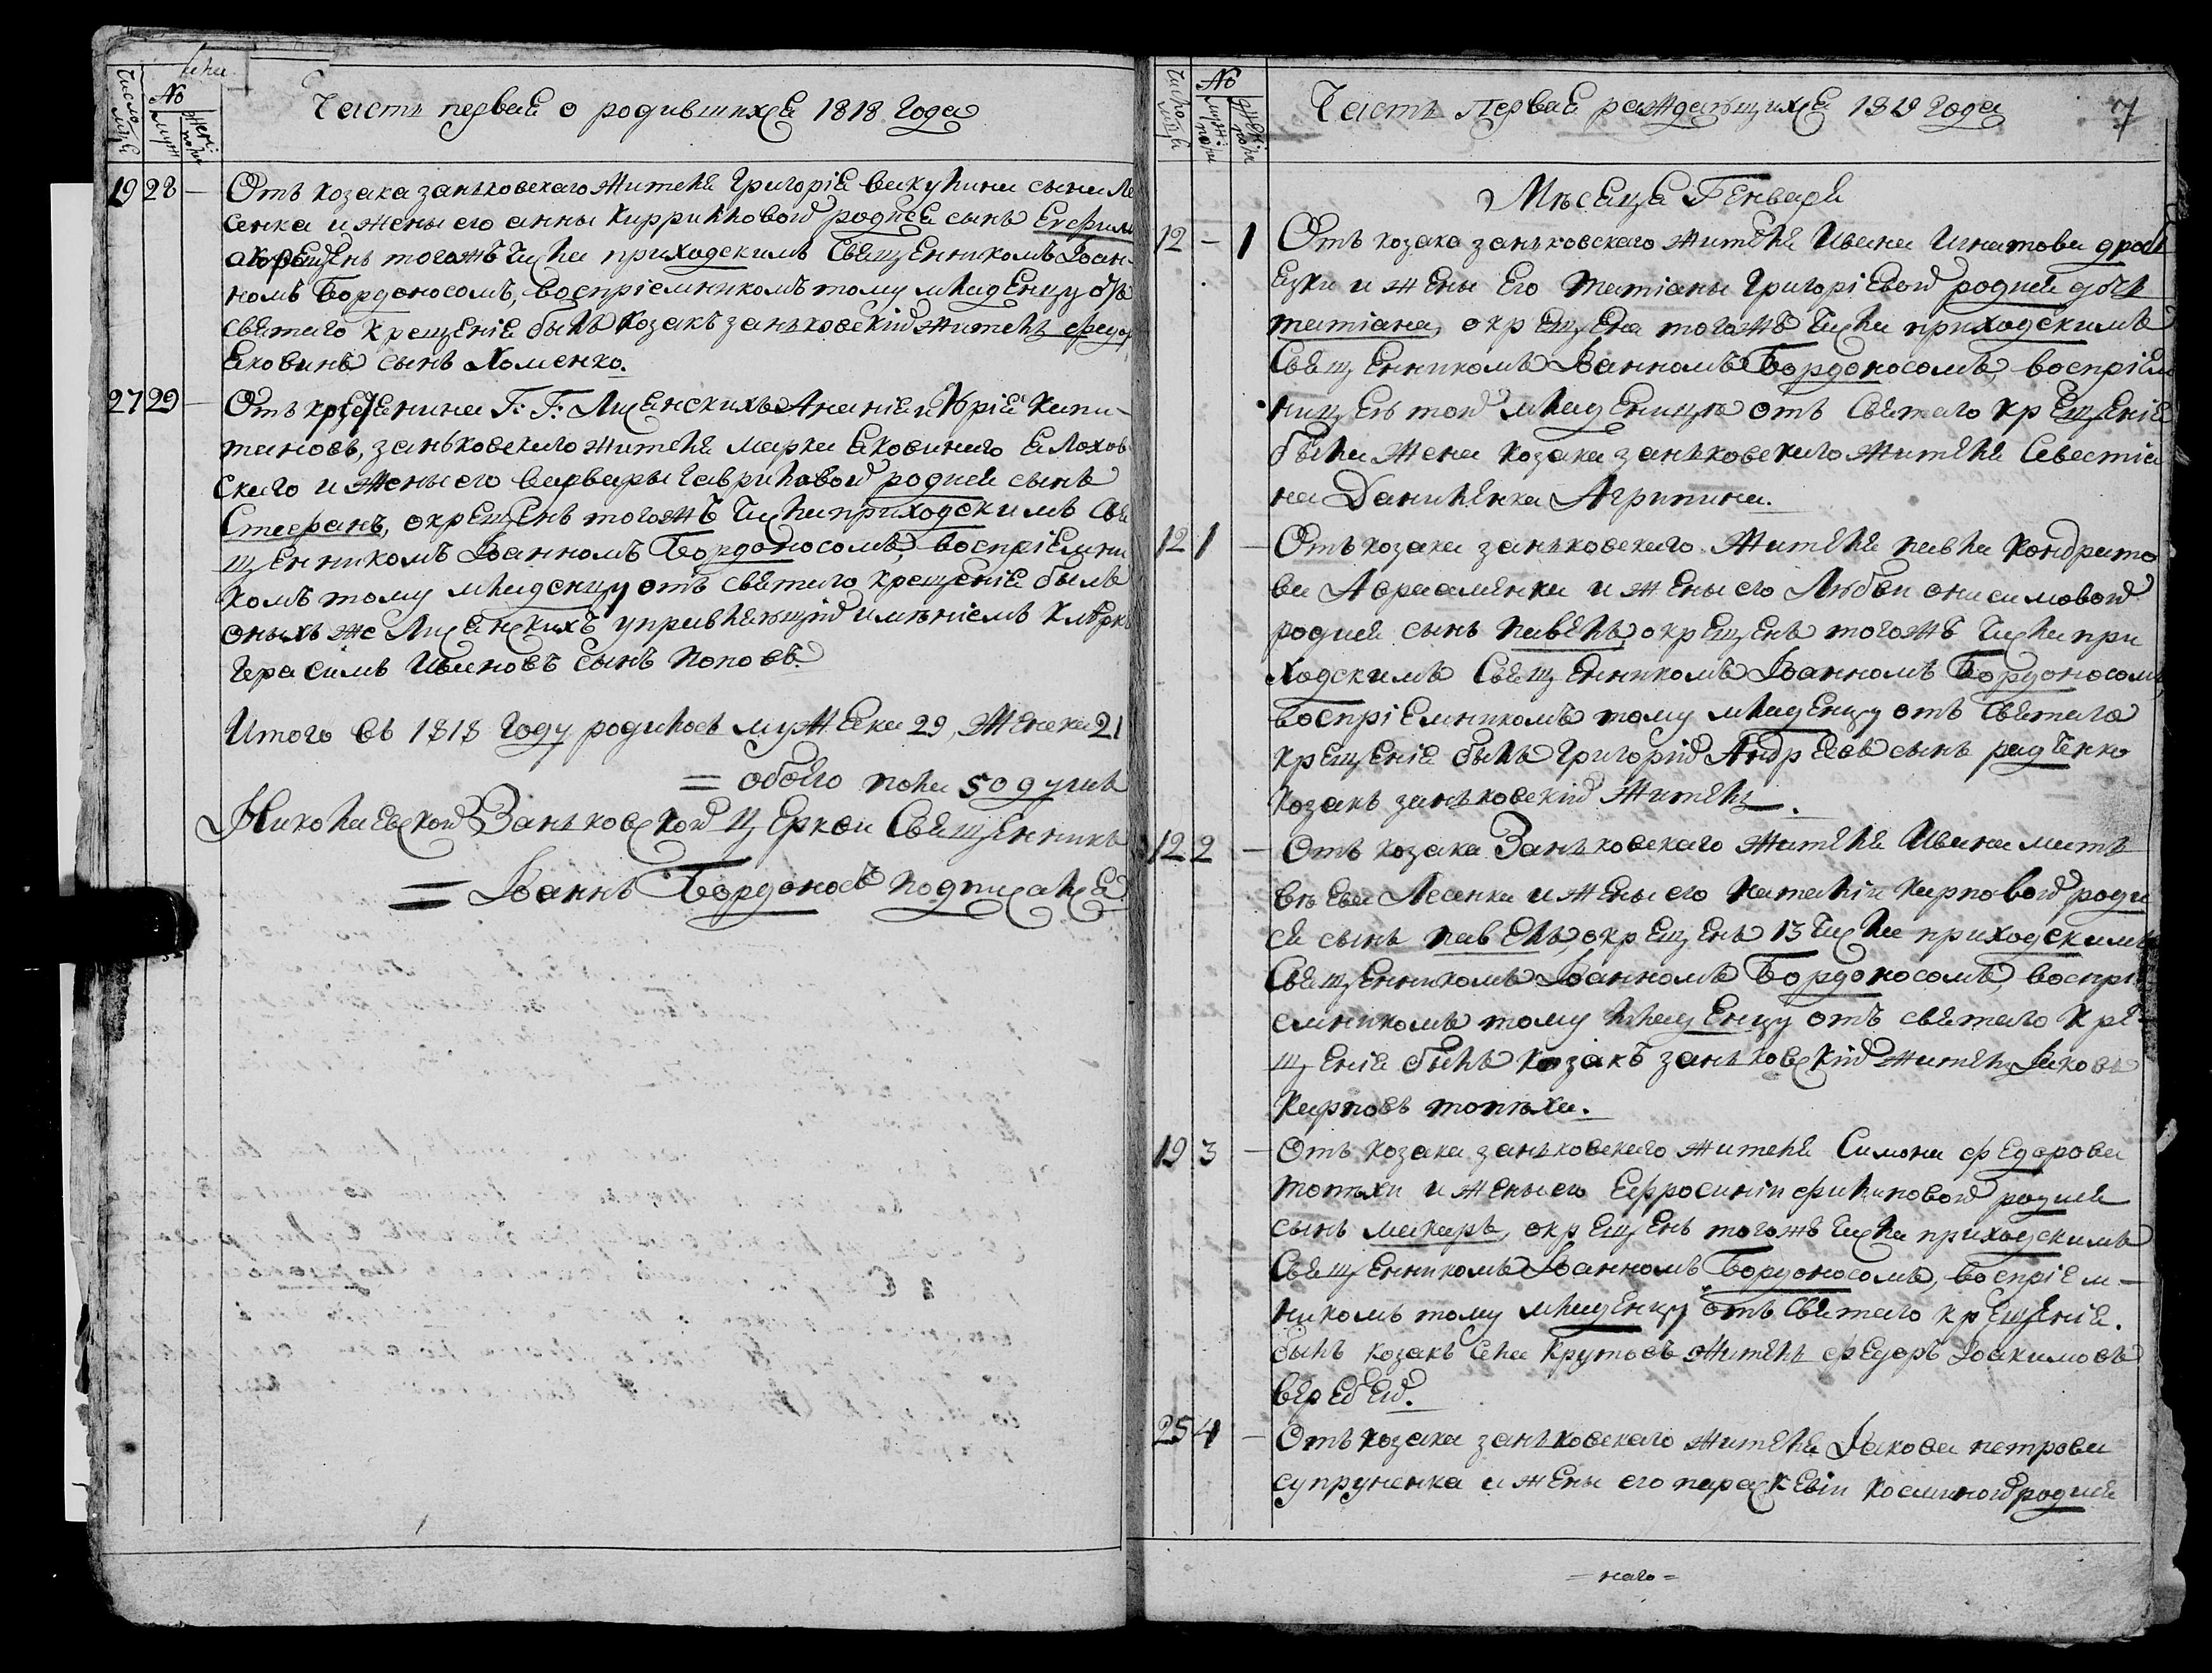 Часть первая о родившихся 1818 Года
Число
№
муж
жен
19 28 — Отъ козака заньковскаго жителя Григорія вакулина сына Ле
сенка и жены его анны Кирриловой родися сынъ
окрещенъ тогожъ числа приходскимъ Священникомъ Іоан-
номъ Бордоносомъ, воспріемникомъ тому младенцу отъ
святаго крещенія былъ Козакъ заньковскій житель федор
Яковинъ сынъ Хоменко.
27 29 — Отъ Г: Г: Лисанскихъ Ананія и Юрія Капи-
тановъ, заньковскаго жителя марка Яковинаго
скаго и жены его варвары Гавриловой родися сынъ
Стефанъ, окрещенъ тогожъ числа приходскимъ Свя
щенникомъ Іоанномъ Бордоносомъ, воспріемни
комъ тому младенцу отъ святаго крещенія былъ
оныхъ же Лисанскихъ управляющій имѣніемъ Клѣркъ
Герасимъ Ивановъ сынъ Поповъ.
Итого въ 1818 Году родилось мужеска 29, Женска 21
= обоего пола 50 душъ
Николаевской Заньковской Церкви Священникъ
= Іоаннъ Бордоносъ подписался
Часть Первая раждающихся 1819 Года 7
Число
№
муж: полу
жен: полу
Мѣсяца Генваря
12 — 1 Отъ козака заньковскаго жителя Ивана Игнатова
и жены Его Татіаны Григоріевой родися дочь
татіана, окрещена тогожъ числа приходскимъ
Священникомъ Іоанномъ Бордоносомъ, воспріем
ницею той младеницы отъ Святаго крещенія
была жена козака заньковскаго жителя Севастіа
на Даниленка Агрипина.
12 1 — Отъ козака заньковскаго жителя павла Кондрато
ва Авраменка и жены его Любви онисимовой
родися сынъ павелъ, окрещенъ тогожъ числа при
ходскимъ Священникомъ Іоанномъ Бордоносомъ,
воспріемникомъ тому младенцу отъ святаго
крещенія былъ Григорій Андреевъ сынъ радченко
козакъ заньковскій житель.
12 2 — Отъ козака Заньковскаго жителя Ивана матъ
вѣева Лесенка и жены его Наталіи Карповой роди
ся сынъ павелъ, окрещенъ 13 числа приходскимъ
Священникомъ Іоанномъ Бордоносомъ, воспрі
емникомъ тому младенцу отъ святаго кре-
щенія былъ козакъ заньковскій житель Іаковъ
Карповъ топѣха.
19 3 — Отъ козака заньковскаго жителя Симона федорова
топѣхи и жены его Евфросиніи филиповой родися
сынъ макаръ, окрещенъ тогожъ числа приходскимъ
Священникомъ Іоанномъ Бордоносомъ, воспріем-
никомъ тому младенцу отъ святаго крещенія.
былъ козакъ села Крутовъ житель федоръ Іоакимовъ
веребей.
25 4 — Отъ козака заньковскаго жителя Іакова петрова
супруненка и жены его параскевіи Косминой родися
= наго =